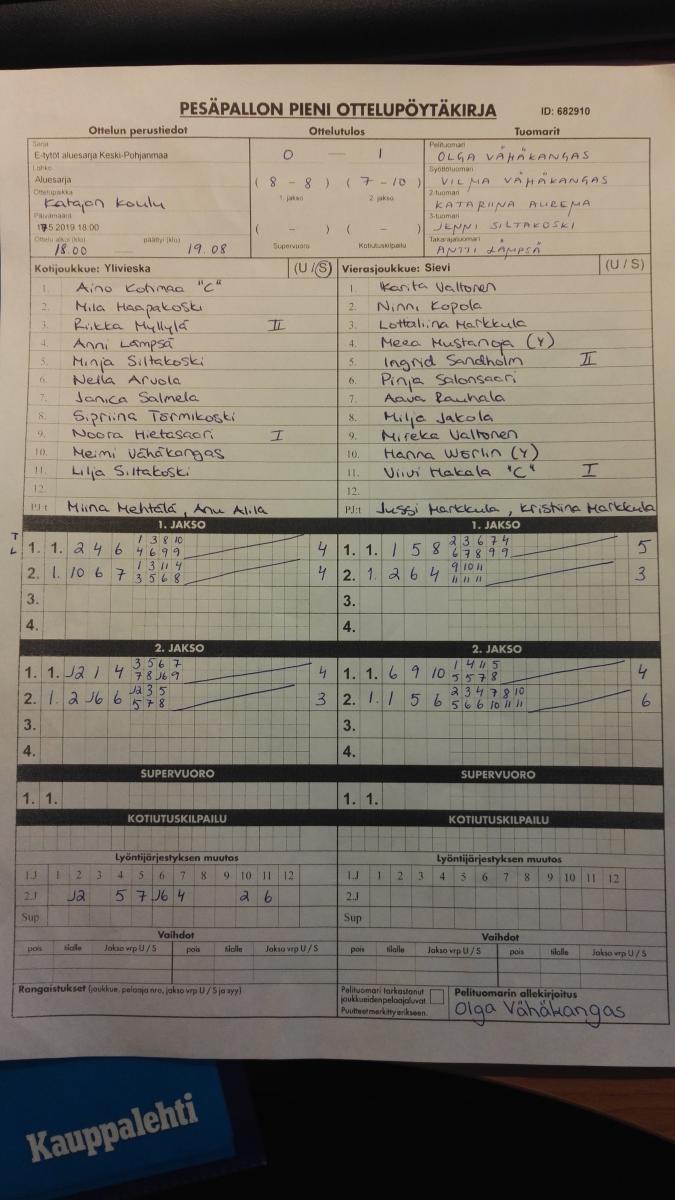 PESÄPALLON PIENI OTTELUPÖYTÄKIRJA ID: 682910
Ottelun perustiedot Ottelutulos Tuomarit
Sarja
E-tytöt aluesarja Keski-Pohjanmaa
Lohko
Aluesarja
Ottelupaikka
Katajan Koulu
Päivämäärä
17.5.2019 18:00
Ottelu alkoi (klo) päättyi (klo)
18.00 19.08
0 — 1
( 8 - 8 ) ( 7 - 10 )
1. jakso 2. jakso
( - ) ( - )
Supervuoro Kotiutuskilpailu
Pelituomari
OLGA VÄHÄKANGAS
Syöttötuomari
VILMA VÄHÄKANGAS
2-tuomari
KATARIINA AUREMA
3-tuomari
JENNI SILTAKOSKI
Takarajatuomari
ANTTI LÄMPSÄ
Kotijoukkue: Ylivieska (U / S)
1. Aino Kohmaa "C"
2. Mila Haapakoski
3. Riikka Myllylä II
4. Anni Lämpsä
5. Minja Siltakoski
6. Nella Arvola
7. Janica Salmela
8. Sipriina Törmikoski
9. Noora Hietasaari I
10. Meimi Vähäkangas
11. Lilja Siltakoski
12.
PJ:t Miina Mehtälä, Anu Alila
Vierasjoukkue: Sievi (U / S)
1. Karita Valtonen
2. Ninni Kopola
3. Lottaliina Markkula
4. Meea Mustanoja (Y)
5. Ingrid Sandholm II
6. Pinja Salonsaari
7. Aava Rauhala
8. Milja Jakola
9. Mireka Valtonen
10. Hanna Werlin (Y)
11. Viivi Makala "C" I
12.
PJ:t Jussi Markkula, Kristiina Markkula
1. JAKSO 1. JAKSO
T
L
1 3 8 10
1. 1. 2 4 6 4 6 9 9 4
1 3 11 4
2. 1. 10 6 7 3 5 6 8 4
3.
4.
2 3 6 7 4
1. 1. 1 5 8 6 7 8 9 9 5
9 10 11
2. 1. 2 6 4 11 11 11 3
3.
4.
2. JAKSO 2. JAKSO
3 5 6 7
1. 1. J2 1 4 7 8 J6 9 4
J2 3 5
2. 1. 2 J6 6 5 7 8 3
3.
4.
1 4 11 5
1. 1. 6 9 10 5 5 7 8 4
2 3 4 7 8 10
2. 1. 1 5 6 5 6 6 10 11 11 6
3.
4.
SUPERVUORO SUPERVUORO
1. 1. 1. 1.
KOTIUTUSKILPAILU KOTIUTUSKILPAILU
Lyöntijärjestyksen muutos Lyöntijärjestyksen muutos
1.J 1 2 3 4 5 6 7 8 9 10 11 12
2.J J2 5 7 J6 4 2 6
Sup
1.J 1 2 3 4 5 6 7 8 9 10 11 12
2.J
Sup
Vaihdot Vaihdot
pois tilalle Jakso vrp U / S pois tilalle Jakso vrp U / S
pois tilalle Jakso vrp U / S pois tilalle Jakso vrp U / S
Rangaistukset (joukkue, pelaaja nro, jakso vrp U / S ja syy)
Pelituomari tarkastanut
joukkueiden pelaajaluvat.
Puutteet merkitty erikseen.
Pelituomarin allekirjoitus
Olga Vähäkangas
Kauppalehti